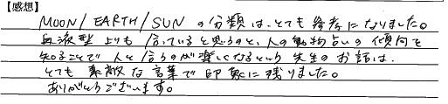 【感想】
MOON/EARTH/SUNの分類は、とても参考になりました。
血液型よりも合っていると思うのと、人の動物占いの傾向を
知ることで人と合うのが楽しくなるという先生のお話は、
とても素敵な言葉で印象に残りました。
ありがとうございます。